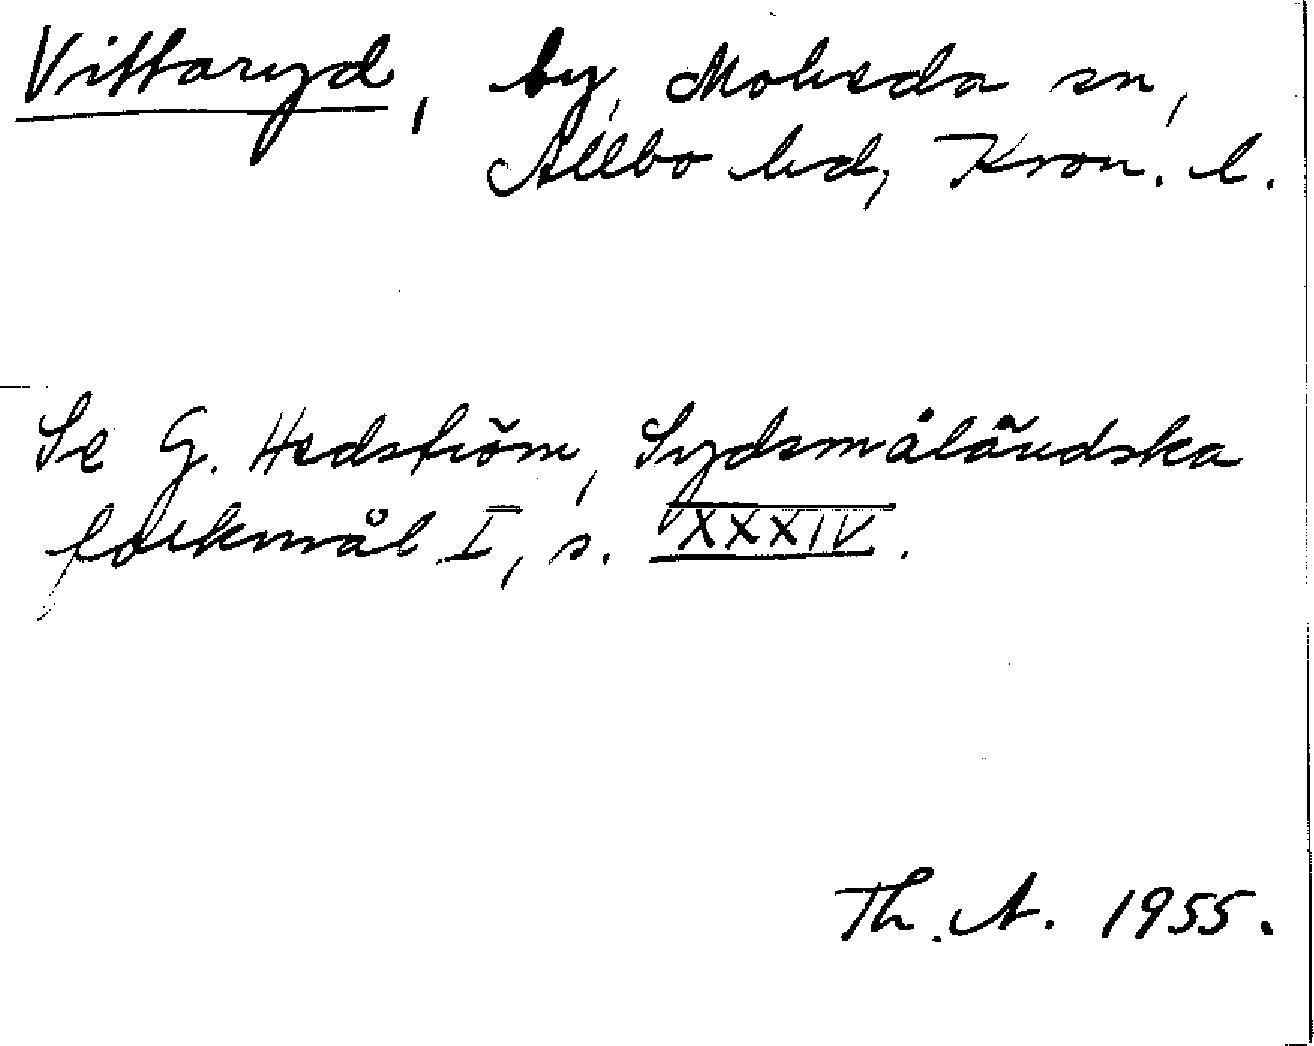 Vittaryd, by, Moheda sn,
Allbo hd, Kron. l.
Se G. Hedström, Sydsmåländska
folkmål I, s. XXXIV.
Th. A. 1955.